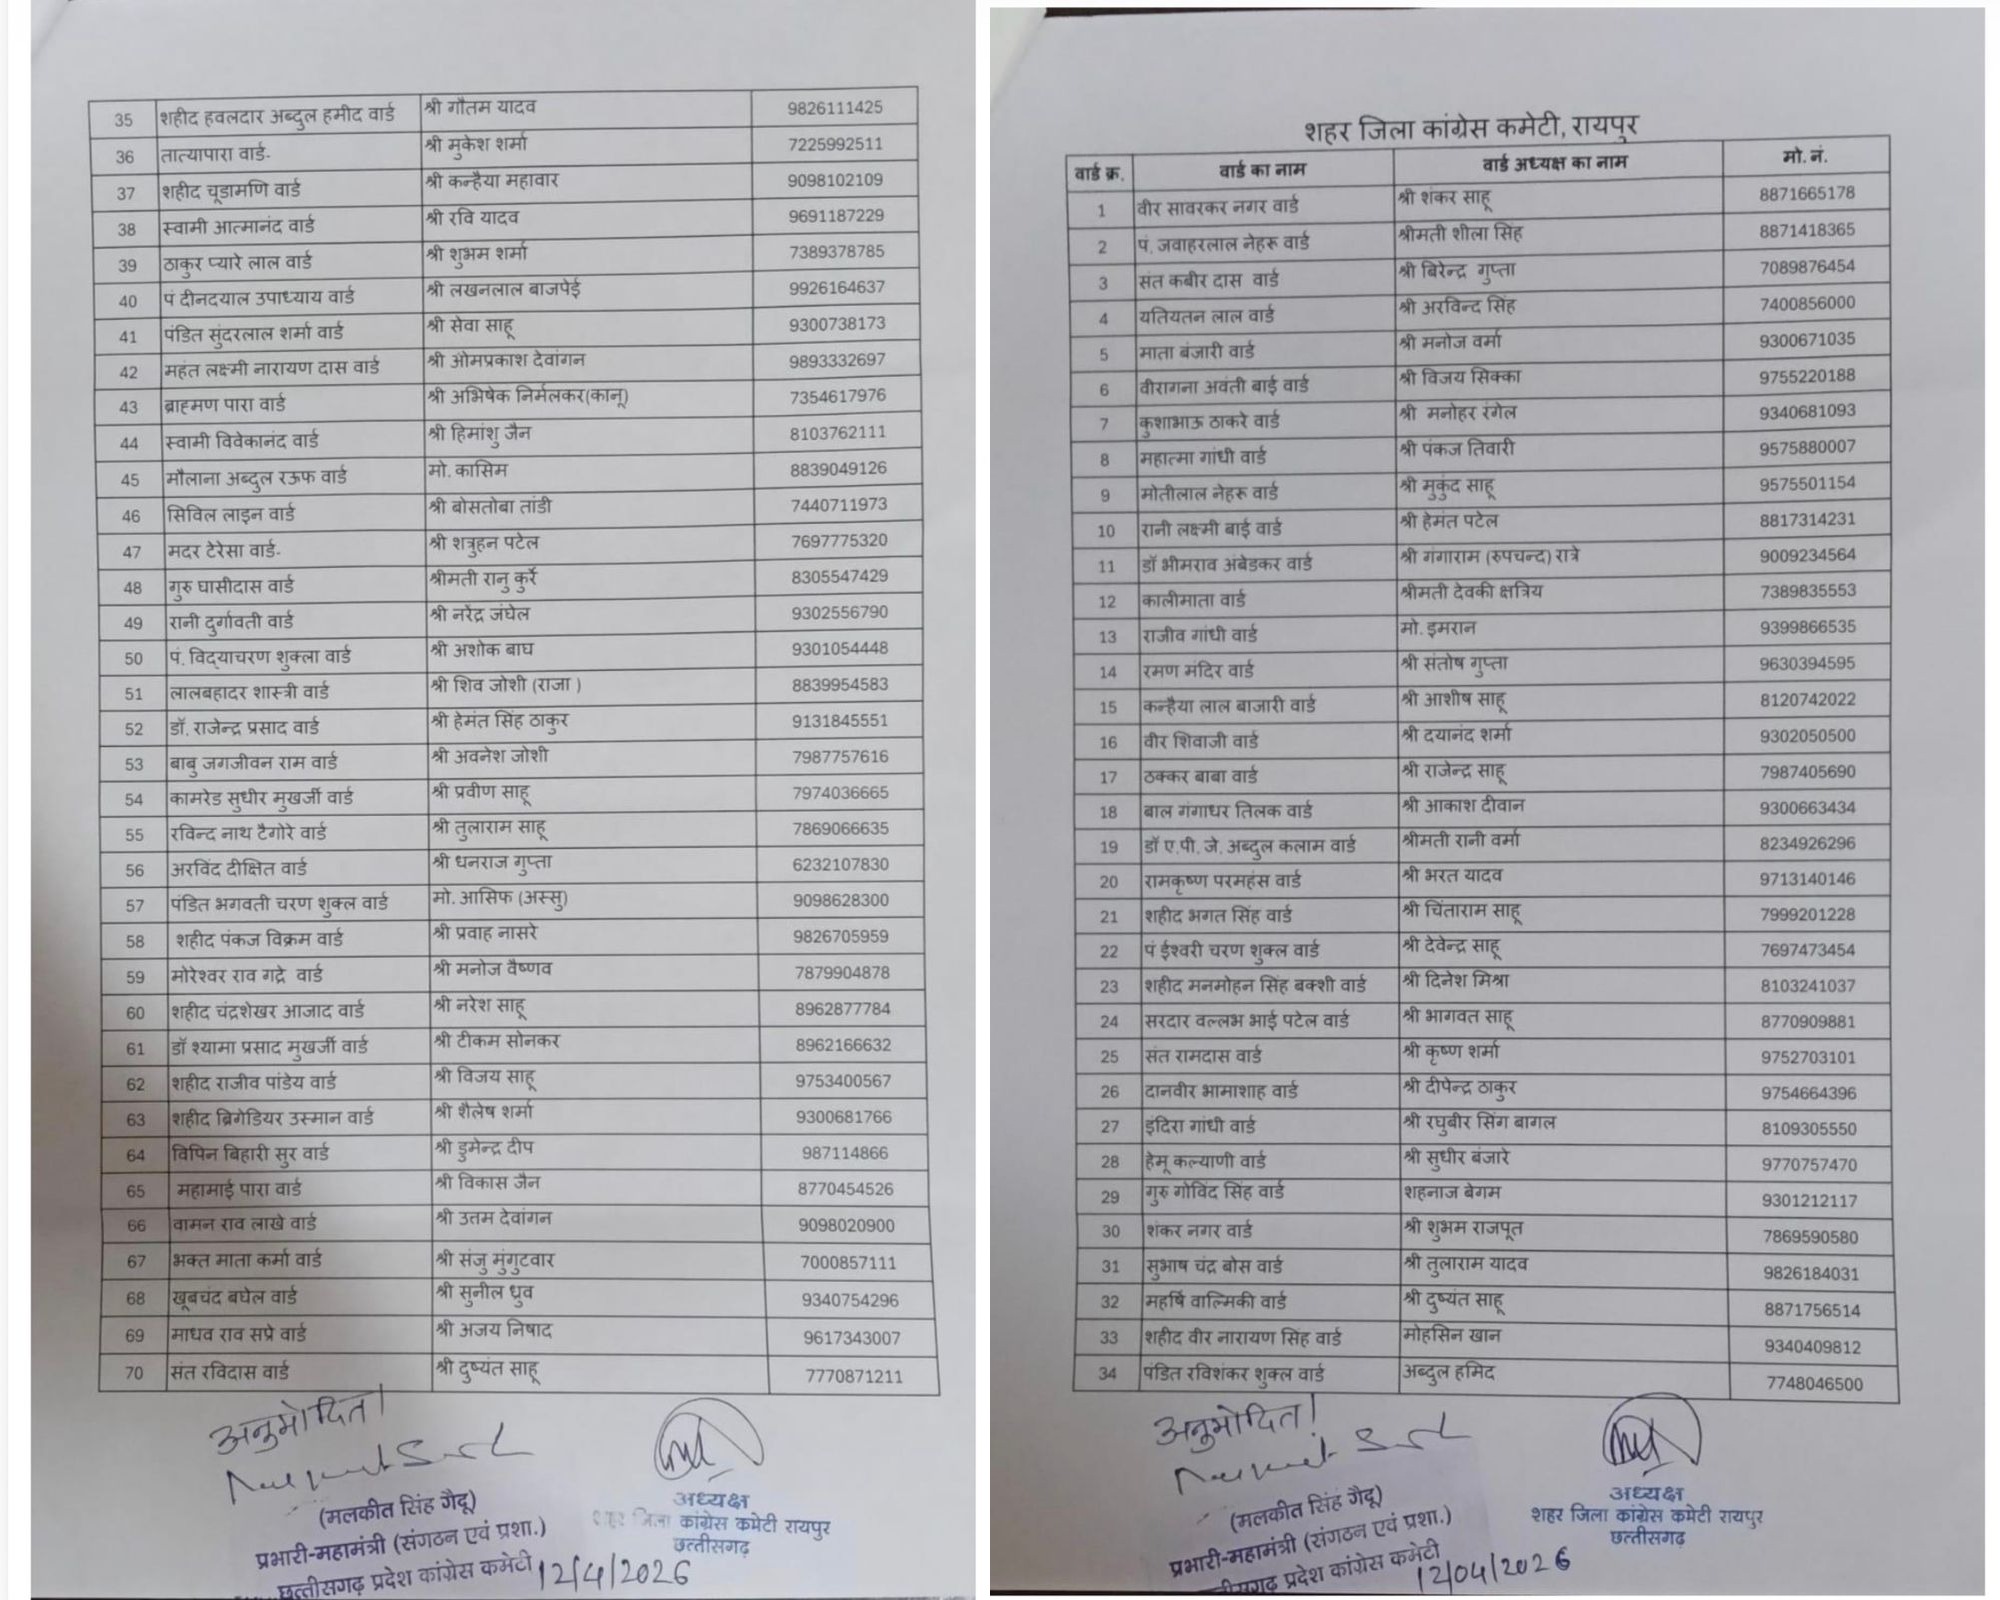 35 शहीद हवलदार अब्दुल हमीद वार्ड श्री गौतम यादव 9826111425
36 तात्यापारा वार्ड- श्री मुकेश शर्मा 7225992511
37 शहीद चूडामणि वार्ड श्री कन्हैया महावार 9098102109
38 स्वामी आत्मानंद वार्ड श्री रवि यादव 9691187229
39 ठाकुर प्यारे लाल वार्ड श्री शुभम शर्मा 7389378785
40 पं दीनदयाल उपाध्याय वार्ड श्री लखनलाल बाजपेई 9926164637
41 पंडित सुंदरलाल शर्मा वार्ड श्री सेवा साहू 9300738173
42 महंत लक्ष्मी नारायण दास वार्ड श्री ओमप्रकाश देवांगन 9893332697
43 ब्राह्मण पारा वार्ड श्री अभिषेक निर्मलकर(कानू) 7354617976
44 स्वामी विवेकानंद वार्ड श्री हिमांशु जैन 8103762111
45 मौलाना अब्दुल रऊफ वार्ड मो. कासिम 8839049126
46 सिविल लाइन वार्ड श्री बोसतोबा तांडी 7440711973
47 मदर टेरेसा वार्ड- श्री शत्रुहन पटेल 7697775320
48 गुरु घासीदास वार्ड श्रीमती रानु कुर्रे 8305547429
49 रानी दुर्गावती वार्ड श्री नरेंद्र जंघेल 9302556790
50 पं. विद्याचरण शुक्ला वार्ड श्री अशोक बाघ 9301054448
51 लालबहादर शास्त्री वार्ड श्री शिव जोशी (राजा ) 8839954583
52 डॉ. राजेन्द्र प्रसाद वार्ड श्री हेमंत सिंह ठाकुर 9131845551
53 बाबु जगजीवन राम वार्ड श्री अवनेश जोशी 7987757616
54 कामरेड सुधीर मुखर्जी वार्ड श्री प्रवीण साहू 7974036665
55 रविन्द नाथ टैगोरे वार्ड श्री तुलाराम साहू 7869066635
56 अरविंद दीक्षित वार्ड श्री धनराज गुप्ता 6232107830
57 पंडित भगवती चरण शुक्ल वार्ड मो. आसिफ (अस्सु) 9098628300
58 शहीद पंकज विक्रम वार्ड श्री प्रवाह नासरे 9826705959
59 मोरेश्वर राव गद्रे वार्ड श्री मनोज वैष्णव 7879904878
60 शहीद चंद्रशेखर आजाद वार्ड श्री नरेश साहू 8962877784
61 डॉ श्यामा प्रसाद मुखर्जी वार्ड श्री टीकम सोनकर 8962166632
62 शहीद राजीव पांडेय वार्ड श्री विजय साहू 9753400567
63 शहीद ब्रिगेडियर उस्मान वार्ड श्री शैलेष शर्मा 9300681766
64 विपिन बिहारी सुर वार्ड श्री डुमेन्द्र दीप 987114866
65 महामाई पारा वार्ड श्री विकास जैन 8770454526
66 वामन राव लाखे वार्ड श्री उत्तम देवांगन 9098020900
67 भक्त माता कर्मा वार्ड श्री संजु मुंगुटवार 7000857111
68 खूबचंद बघेल वार्ड श्री सुनील ध्रुव 9340754296
69 माधव राव सप्रे वार्ड श्री अजय निषाद 9617343007
70 संत रविदास वार्ड श्री दुष्यंत साहू 7770871211
अनुमोदित!
(मलकीत सिंह गैदू)
प्रभारी-महामंत्री (संगठन एवं प्रशा.)
छत्तीसगढ़ प्रदेश कांग्रेस कमेटी 12/4/2026
अध्यक्ष
शहर जिला कांग्रेस कमेटी रायपुर
छत्तीसगढ़
शहर जिला कांग्रेस कमेटी, रायपुर
वार्ड क्र. वार्ड का नाम वार्ड अध्यक्ष का नाम मो. नं.
1 वीर सावरकर नगर वार्ड श्री शंकर साहू 8871665178
2 पं. जवाहरलाल नेहरू वार्ड श्रीमती शीला सिंह 8871418365
3 संत कबीर दास वार्ड श्री बिरेन्द्र गुप्ता 7089876454
4 यतियतन लाल वार्ड श्री अरविन्द सिंह 7400856000
5 माता बंजारी वार्ड श्री मनोज वर्मा 9300671035
6 वीरागना अवंती बाई वार्ड श्री विजय सिक्का 9755220188
7 कुशाभाऊ ठाकरे वार्ड श्री मनोहर रंगेल 9340681093
8 महात्मा गांधी वार्ड श्री पंकज तिवारी 9575880007
9 मोतीलाल नेहरू वार्ड श्री मुकुंद साहू 9575501154
10 रानी लक्ष्मी बाई वार्ड श्री हेमंत पटेल 8817314231
11 डॉ भीमराव अंबेडकर वार्ड श्री गंगाराम (रुपचन्द) रात्रे 9009234564
12 कालीमाता वार्ड श्रीमती देवकी क्षत्रिय 7389835553
13 राजीव गांधी वार्ड मो. इमरान 9399866535
14 रमण मंदिर वार्ड श्री संतोष गुप्ता 9630394595
15 कन्हैया लाल बाजारी वार्ड श्री आशीष साहू 8120742022
16 वीर शिवाजी वार्ड श्री दयानंद शर्मा 9302050500
17 ठक्कर बाबा वार्ड श्री राजेन्द्र साहू 7987405690
18 बाल गंगाधर तिलक वार्ड श्री आकाश दीवान 9300663434
19 डॉ ए.पी. जे. अब्दुल कलाम वार्ड श्रीमती रानी वर्मा 8234926296
20 रामकृष्ण परमहंस वार्ड श्री भरत यादव 9713140146
21 शहीद भगत सिंह वार्ड श्री चिंताराम साहू 7999201228
22 पं ईश्वरी चरण शुक्ल वार्ड श्री देवेन्द्र साहू 7697473454
23 शहीद मनमोहन सिंह बक्शी वार्ड श्री दिनेश मिश्रा 8103241037
24 सरदार वल्लभ भाई पटेल वार्ड श्री भागवत साहू 8770909881
25 संत रामदास वार्ड श्री कृष्ण शर्मा 9752703101
26 दानवीर भामाशाह वार्ड श्री दीपेन्द्र ठाकुर 9754664396
27 इंदिरा गांधी वार्ड श्री रघुबीर सिंग बागल 8109305550
28 हेमू कल्याणी वार्ड श्री सुधीर बंजारे 9770757470
29 गुरु गोविंद सिंह वार्ड शहनाज बेगम 9301212117
30 शंकर नगर वार्ड श्री शुभम राजपूत 7869590580
31 सुभाष चंद्र बोस वार्ड श्री तुलाराम यादव 9826184031
32 महर्षि वाल्मिकी वार्ड श्री दुष्यंत साहू 8871756514
33 शहीद वीर नारायण सिंह वार्ड मोहसिन खान 9340409812
34 पंडित रविशंकर शुक्ल वार्ड अब्दुल हमिद 7748046500
अनुमोदित!
(मलकीत सिंह गैदू)
प्रभारी-महामंत्री (संगठन एवं प्रशा.)
प्रदेश कांग्रेस कमेटी
12/04/2026
अध्यक्ष
शहर जिला कांग्रेस कमेटी रायपुर
छत्तीसगढ़